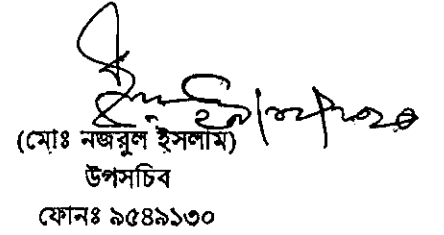 (মোঃ নজরুল ইসলাম)
উপসচিব
ফোনঃ ৯৫৪৯১৩০